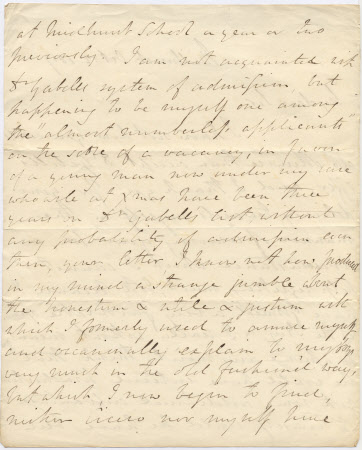 at Midhurst School a year or two
previously. I am not acquainted with
Dr Gabells system of admission but
happening to be myself one among
"the almost numberless applicants"
on the score of a vacancy, in favor
of a young man now under my care
who will at Xmas have been three
years on Dr Gabells list without
any probability of admission even
then, your letter I know not how produced
in my mind a strange jumble about
the honestum & utile & justum with
which I formerly used to amuse myself
and occasionally explain to my boys
very much in the old fashion'd way,
but which, I now begin to find,
neither Cicero nor myself have